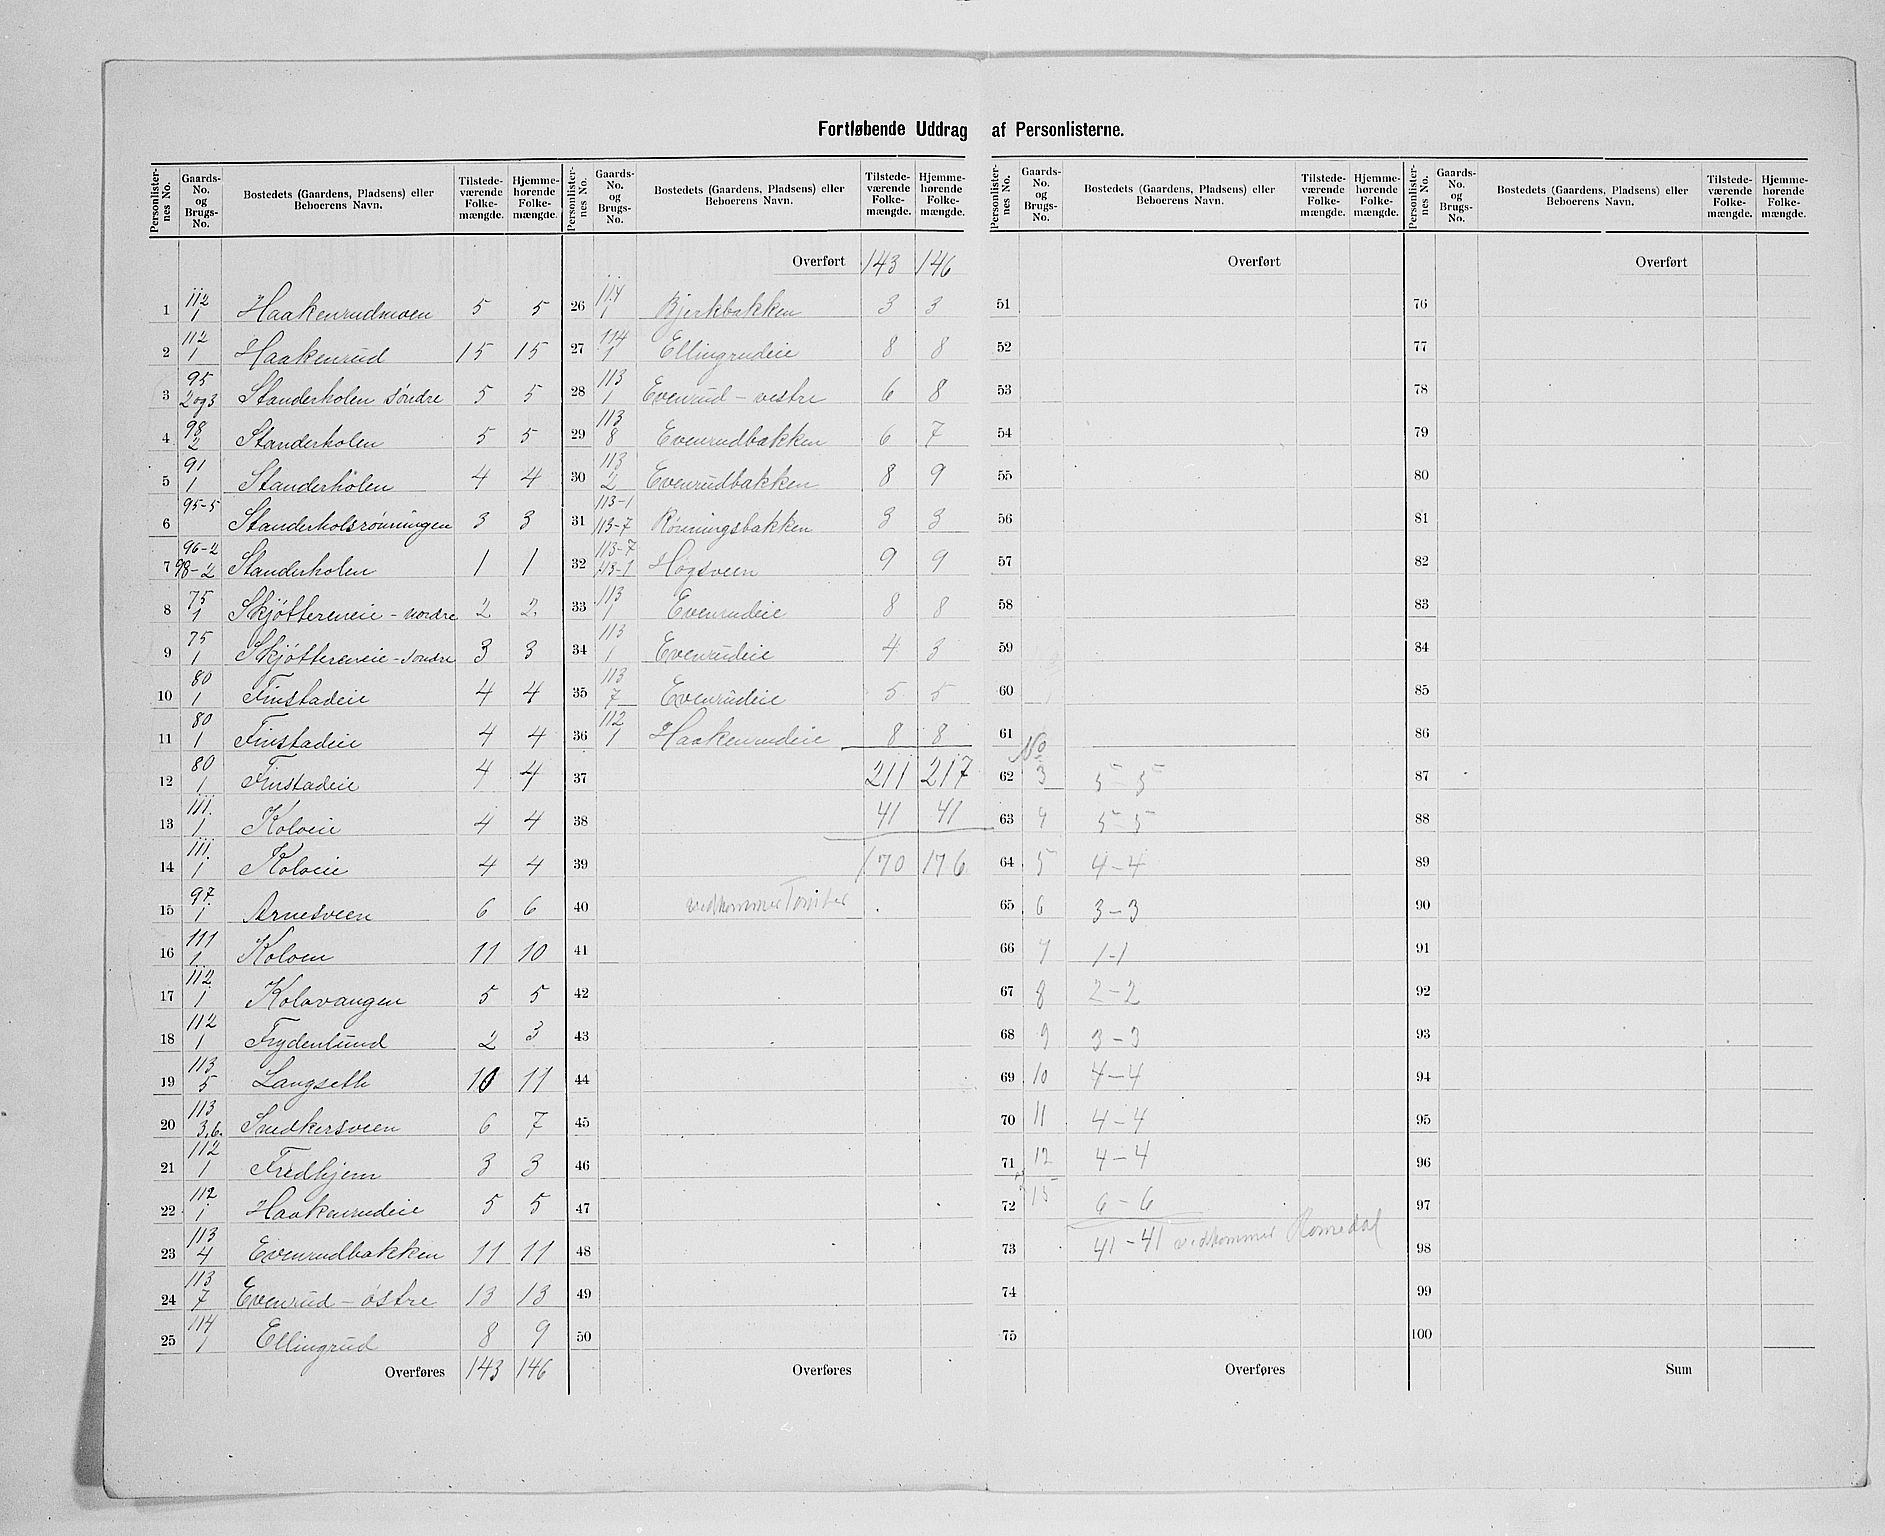 Fortløbende Uddrag af Personlisterne.
Personlisternes No. | Gaards-No. og Brugs-No. | Bostedets (Gaardens, Pladsens) eller Beboerens Navn. | Tilstedeværende Folkemængde. | Hjemmehørende Folkemængde.
1 | 112 1 | Haakenrudmoen | 5 | 5
2 | 112 1 | Haakenrud | 15 | 15
3 | 95 2 og 3 | Standerholen søndre | 5 | 5
4 | 98 2 | Standerholen | 5 | 5
5 | 91 1 | Standerholen | 4 | 4
6 | 95-5 | Standerholsrønningen | 3 | 3
7 | 96-2 98-2 | Standerholen | 1 | 1
8 | 75 1 | Skjøttereneie - nordre | 2 | 2
9 | 75 1 | Skjøttereneie - søndre | 3 | 3
10 | 80 1 | Finstadeie | 4 | 4
11 | 80 1 | Finstadeie | 4 | 4
12 | 80 1 | Finstadeie | 4 | 4
13 | 111. 1 | Koloeie | 4 | 4
14 | 111. 1 | Koloeie | 4 | 4
15 | 97. 1 | Arnesveen | 6 | 6
16 | 111 1. | Koloen | 11 | 10
17 | 112 1 | Kolovangen | 5 | 5
18 | 112 1 | Frydenlund | 2 | 3
19 | 113 5 | Langseth | 10 | 11
20 | 113 3,6. | Snedkersveen | 6 | 7
21 | 112 1 | Fredhjem | 3 | 3
22 | 112 1 | Haakenrudeie | 5 | 5
23 | 113 4 | Evenrudbakken | 11 | 11
24 | 113 7 | Evenrud - østre | 13 | 13
25 | 114 1 | Ellingrud | 8 | 9
Overføres | 143 | 146
Personlisternes No. | Gaards-No. og Brugs-No. | Bostedets (Gaardens, Pladsens) eller Beboerens Navn. | Tilstedeværende Folkemængde. | Hjemmehørende Folkemængde.
Overført | 143 | 146
26 | 114 1 | Bjerkbakken | 3 | 3
27 | 114 1 | Ellingrudeie | 8 | 8
28 | 113 1 | Evenrud - vestre | 6 | 8
29 | 113 8 | Evenrudbakken | 6 | 7
30 | 113 2 | Evenrudbakken | 8 | 9
31 | 113-1 113-7 | Rønningsbakken | 3 | 3
32 | 113-7 113-1 | Hogsveen | 9 | 9
33 | 113 1 | Evenrudeie | 8 | 8
34 | 113 1 | Evenrudeie | 4 | 3
35 | 113 7 | Evenrudeie | 5 | 5
36 | 112 1 | Haakenrudeie | 8 | 8
37 | 211 | 217
38 | 41 | 41
39 | 170 | 176
40 | vedkommer Tomter
41
42
43
44
45
46
47
48
49
50
Overføres
Personlisternes No. | Gaards-No. og Brugs-No. | Bostedets (Gaardens, Pladsens) eller Beboerens Navn. | Tilstedeværende Folkemængde. | Hjemmehørende Folkemængde.
Overført
51
52
53
54
55
56
57
58
59
60
61 | No
62 | 3 | 5 - 5
63 | 4 | 5 - 5
64 | 5 | 4 - 4
65 | 6 | 3 - 3
66 | 7 | 1-1
67 | 8 | 2 - 2
68 | 9 | 3 - 3
69 | 10 | 4 - 4
70 | 11 | 4 - 4
71 | 12 | 4 - 4
72 | 15 | 6 - 6
73 | 41 - 41 vedkommer Romedal
74
75
Overføres
Personlisternes No. | Gaards-No. og Brugs-No. | Bostedets (Gaardens, Pladsens) eller Beboerens Navn. | Tilstedeværende Folkemængde. | Hjemmehørende Folkemængde.
Overført
76
77
78
79
80
81
82
83
84
85
86
87
88
89
90
91
92
93
94
95
96
97
98
99
100
Sum